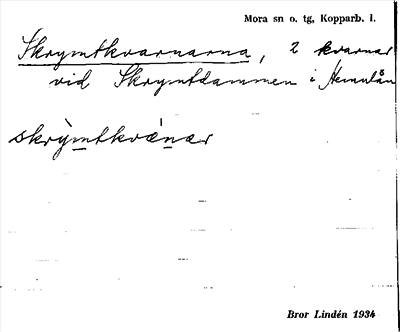 Mora sn o. tg, Kopparb. l.
Skrymtkvarnarna, 2 kvarnar
vid Skrymtdammen i Hemulån
skrỳmtkvànar
Bror Lindén 1934